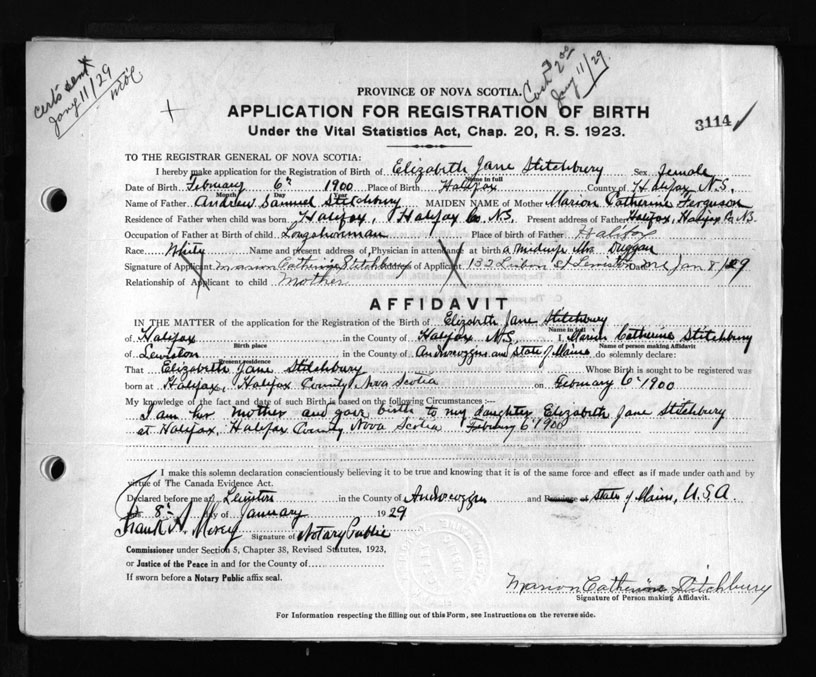 certs sent
Jany 11/29
Cash 2.00
Jany 11/29
PROVINCE OF NOVA SCOTIA.
APPLICATION FOR REGISTRATION OF BIRTH
3114
Under the Vital Statistics Act, Chap. 20, R. S. 1923.
TO THE REGISTRAR GENERAL OF NOVA SCOTIA:
I hereby make application for the Registration of Birth of Elizabeth Jane Stitchbury Sex female
Name in full
Date of Birth February 6th 1900 Place of Birth Halifax County of Halifax N.S.
Month Day Year
Name of Father Andrew Samuel Stitchbury MAIDEN NAME of Mother Marion Catherine Ferguson
Residence of Father when child was born Halifax, Halifax Co. N.S. Present address of Father Halifax, Halifax Co. N.S.
Occupation of Father at Birth of child Longshoreman Place of birth of Father Halifax
Race White Name and present address of Physician in attendance at birth a midwife Mrs Duggan
Signature of Applicant Marion Catherine Stitchbury of Applicant 132 Lisbon St Lewiston Date Me Jan 8/29
Relationship of Applicant to child Mother
AFFIDAVIT
IN THE MATTER of the application for the Registration of the Birth of Elizabeth Jane Stitchbury
Name in full
of Halifax in the County of Halifax N.S. I. Marion Catherine Stitchbury
Birth place Name of person making Affidavit
of Lewiston in the County of Androscoggin and State of Maine do solemnly declare:
Present residence
That Elizabeth Jane Stitchbury Whose Birth is sought to be registered was
born at Halifax, Halifax County, Nova Scotia on February 6th 1900
My knowledge of the fact and date of such Birth is based on the following Circumstances :—
I am her mother and gave birth to my daughter Elizabeth Jane Stitchbury
at Halifax, Halifax County Nova Scotia February 6th 1900
I make this solemn declaration conscientiously believing it to be true and knowing that it is of the same force and effect as if made under oath and by
virtue of The Canada Evidence Act.
Declared before me at Lewiston in the County of Androscoggin and Province of State of Maine, U.S.A.
this 8th day of January 1929
Frank A. Morey Signature of Notary Public
Commissioner under Section 5, Chapter 38, Revised Statutes, 1923,
or Justice of the Peace in and for the County of
If sworn before a Notary Public affix seal.
Marion Catherine Stitchbury
Signature of Person making Affidavit.
For Information respecting the filling out of this Form, see Instructions on the reverse side.